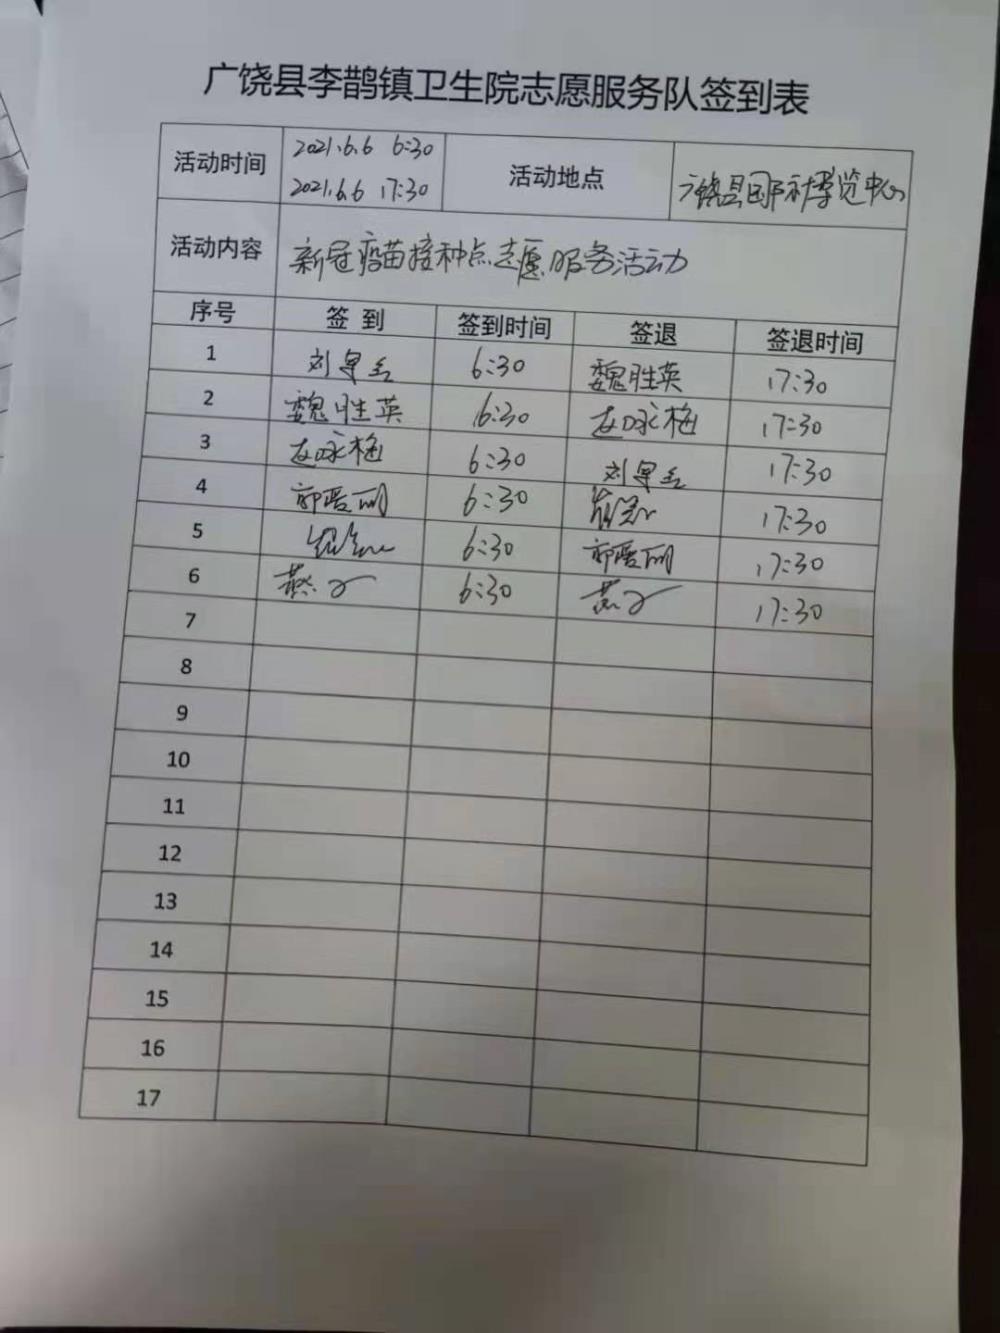 广饶县李鹊镇卫生院志愿服务队签到表
活动时间 2021.6.6 6:30 活动地点 广饶县国际博览中心
2021.6.6 17:30
活动内容 新冠疫苗接种点志愿服务活动
序号 签到 签到时间 签退 签退时间
1 6:30 魏胜英 17:30
2 魏胜英 6:30 赵咏梅 17:30
3 赵咏梅 6:30 17:30
4 6:30 17:30
5 6:30 17:30
6 6:30 17:30
7
8
9
10
11
12
13
14
15
16
17